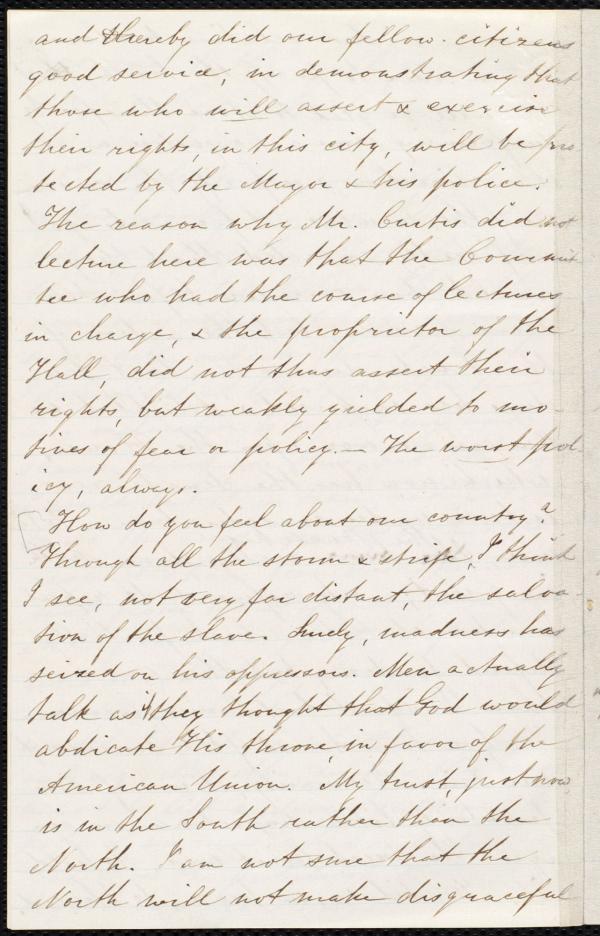 and thereby did our fellow-citizens
good service, in demonstrating that
those who will assert & exercise
their rights, in this city, will be pro
tected by the Mayor & his police.
The reason why Mr. Curtis did not
lecture here was that the Commit
tee who had the course of lectures
in charge, & the proprietor of the
Hall, did not thus assert their
rights, but weakly yielded to mo-
tives of fear or policy.— The worst pol-
icy, always.
How do you feel about our country?
Through all the storm & strife, I think
I see, not very far distant, the salva-
tion of the slave. Surely, madness has
seized on his oppressors. Men actually
talk as if they thought that God would
abdicate His throne, in favor of the
American Union. My trust, just now,
is in the South rather than the
North. I am not sure that the
North will not make disgraceful